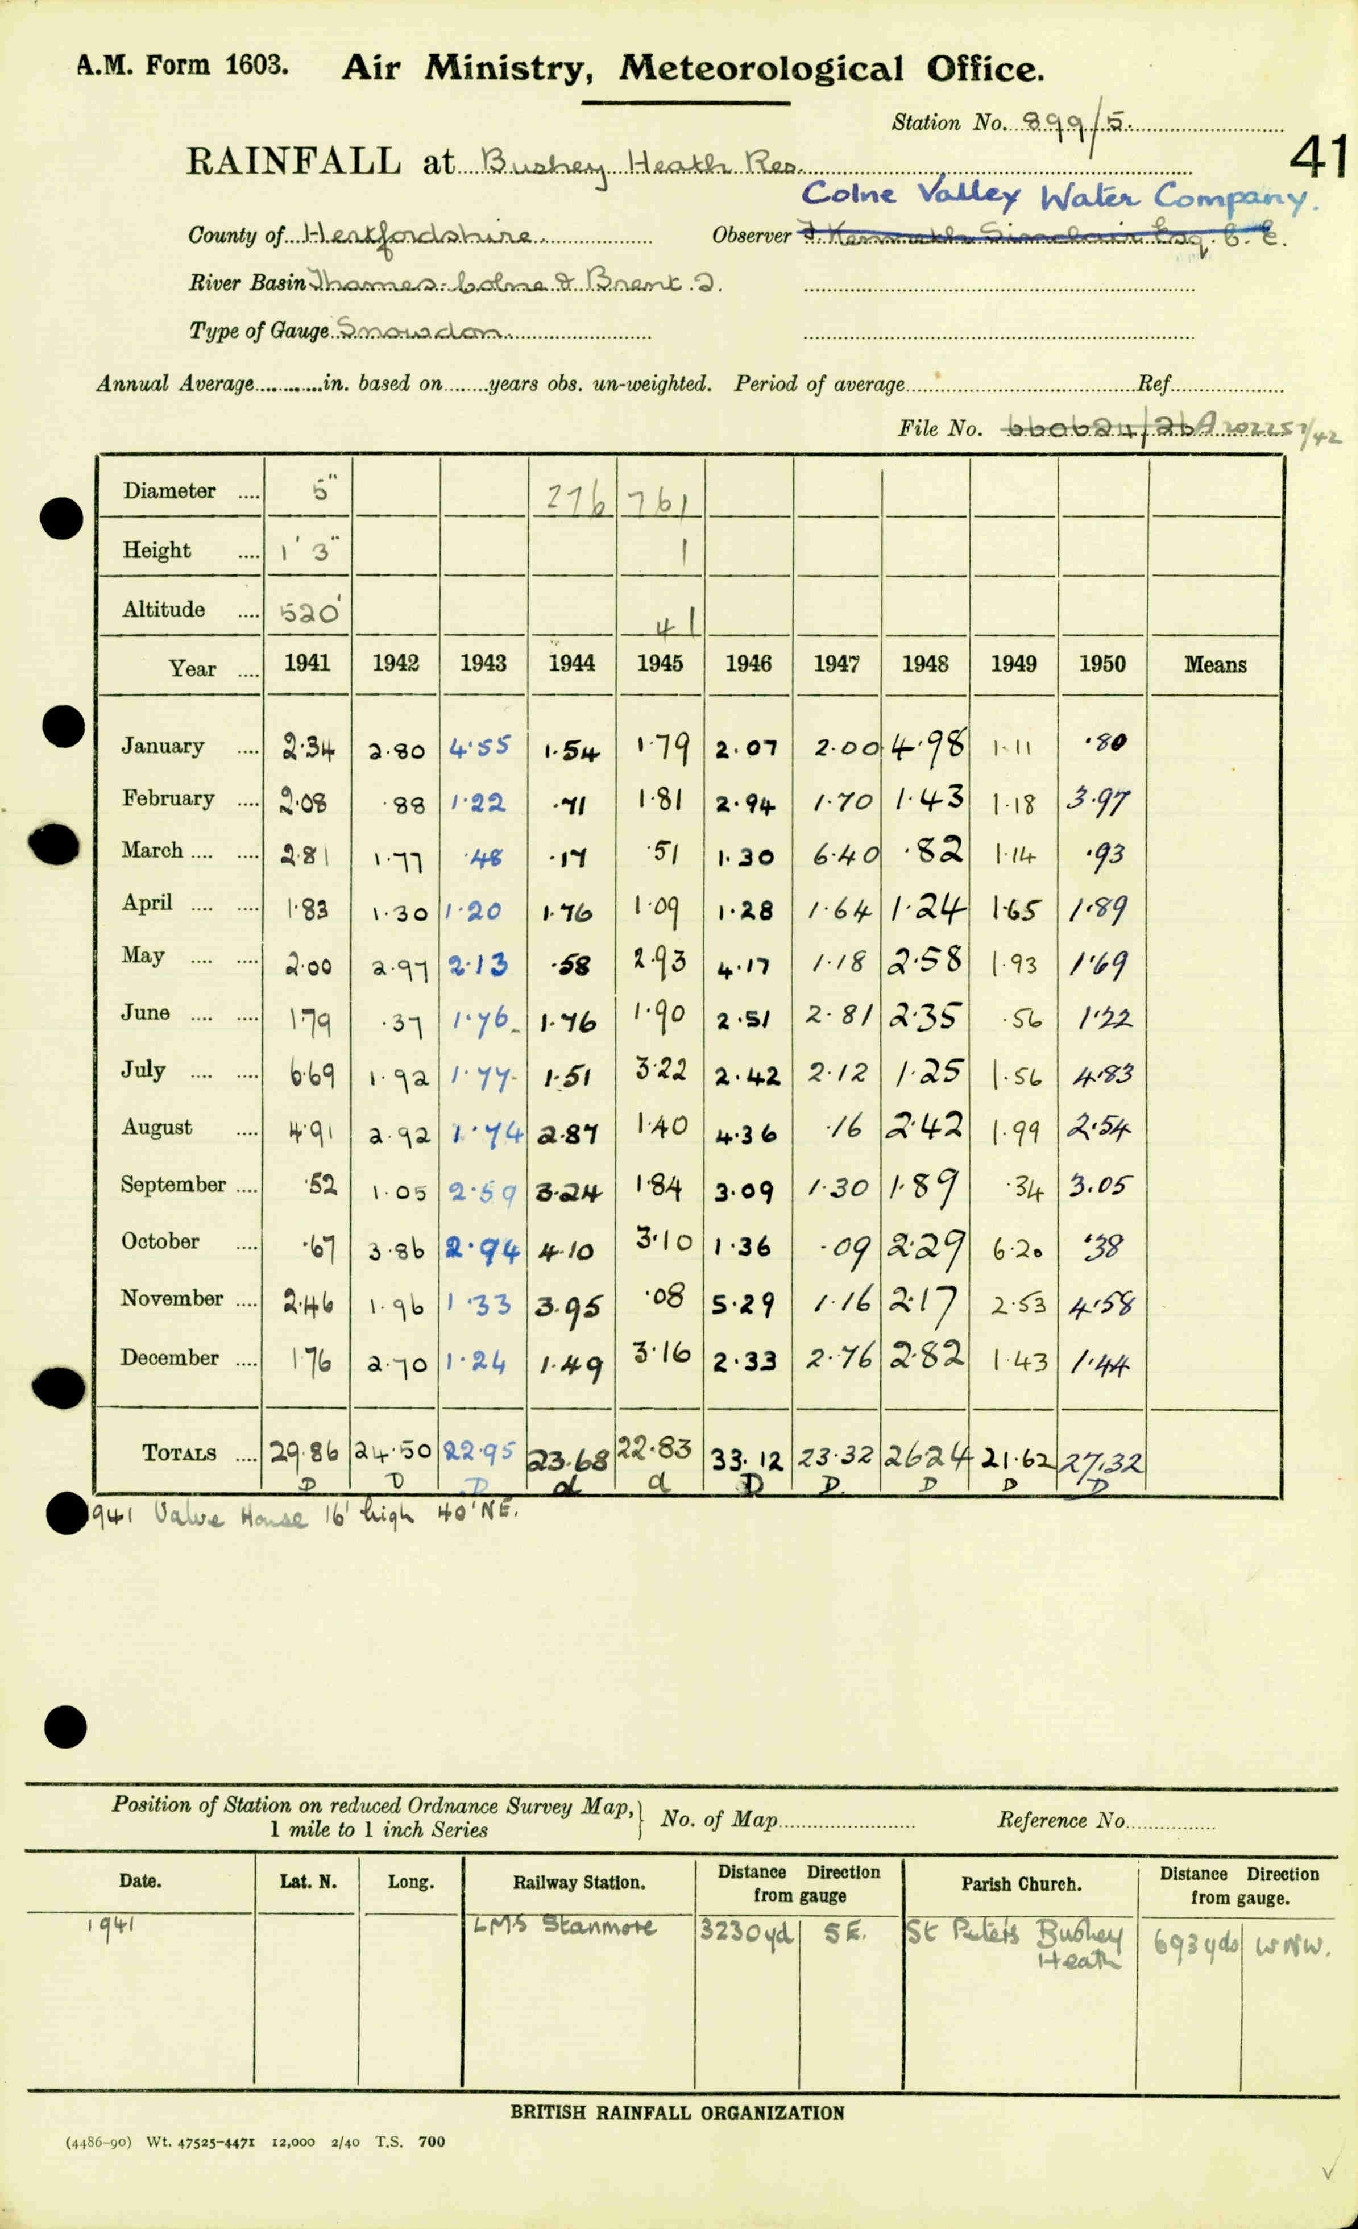 A.M. Form 1603. Air Ministry, Meteorological Office.
Station No. 899/5.
41
RAINFALL at Bushey Heath Res.
Colne Valley Water Company.
County of Hertfordshire. Observer Sinclair Esq. C. E.
River Basin Thames. Colne & Brent. 2.
Type of Gauge Snowdon.
Annual Average in. based on years obs. un-weighted. Period of average Ref.
File No. 660624/26 A202257/42
Diameter .... 5" 276 761
Height .... 1' 3" 1
Altitude .... 520' 41
Year .... 1941 1942 1943 1944 1945 1946 1947 1948 1949 1950 Means
January .... 2.34 2.80 4.55 1.54 1.79 2.07 2.00 4.98 1.11 .80
February .... 2.08 .88 1.22 .71 1.81 2.94 1.70 1.43 1.18 3.97
March .... .... 2.81 1.77 .48 .17 .51 1.30 6.40 .82 1.14 .93
April .... .... 1.83 1.30 1.20 1.76 1.09 1.28 1.64 1.24 1.65 1.89
May .... .... 2.00 2.97 2.13 .58 2.93 4.17 1.18 2.58 1.93 1.69
June .... .... 1.79 .37 1.76 1.76 1.90 2.51 2.81 2.35 .56 1.22
July .... .... 6.69 1.92 1.77 1.51 3.22 2.42 2.12 1.25 1.56 4.83
August .... 4.91 2.92 1.74 2.87 1.40 4.36 .16 2.42 1.99 2.54
September .... .52 1.05 2.59 3.24 1.84 3.09 1.30 1.89 .34 3.05
October .... .67 3.86 2.94 4.10 3.10 1.36 .09 2.29 6.20 .38
November .... 2.46 1.96 1.33 3.95 .08 5.29 1.16 2.17 2.53 4.58
December .... 1.76 2.70 1.24 1.49 3.16 2.33 2.76 2.82 1.43 1.44
TOTALS .... 29.86 24.50 22.95 23.68 22.83 33.12 23.32 26.24 21.62 27.32
D D D d d D D. D D D
1941 Valve House 16' high 40' NE.
Position of Station on reduced Ordnance Survey Map, } No. of Map Reference No.
1 mile to 1 inch Series
Date. Lat. N. Long. Railway Station. Distance Direction from gauge Parish Church. Distance Direction from gauge.
1941 LMS Stanmore 3230yd SE. St Peters Bushey 693yds WNW.
Heath
BRITISH RAINFALL ORGANIZATION
(4486-90) Wt. 47525-4471 12,000 2/40 T.S. 700